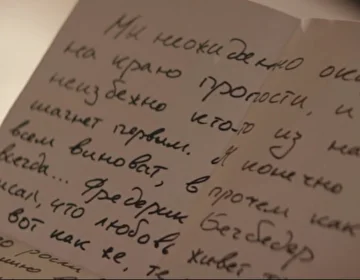 Мы неожиданно ока
на краю пропасти, и
неизбежно кто-то из на
шагнет первым. Я конечно
всем виноват, в прочем как
всегда... Фредерик Бегбедер
исал, что любовь живет т
вот как же, те